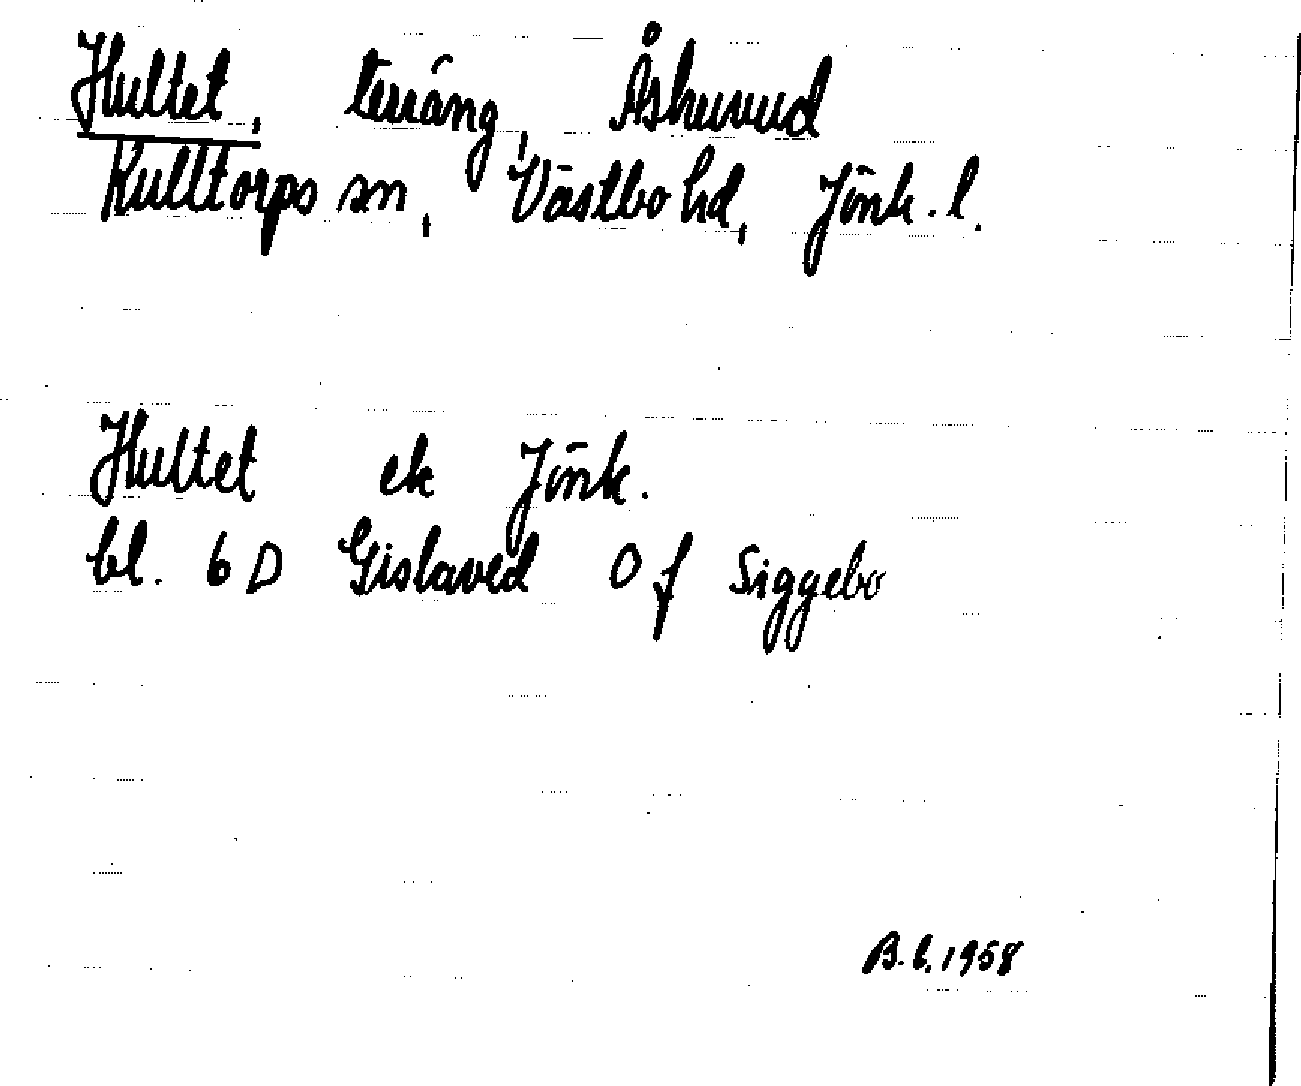 Hultet, terräng, Åshuvud
Kulltorps sn, Västbo hd, Jönk. l.
Hultet ek Jönk.
bl. 6 D Gislaved 0 f Siggebo
B.L. 1958